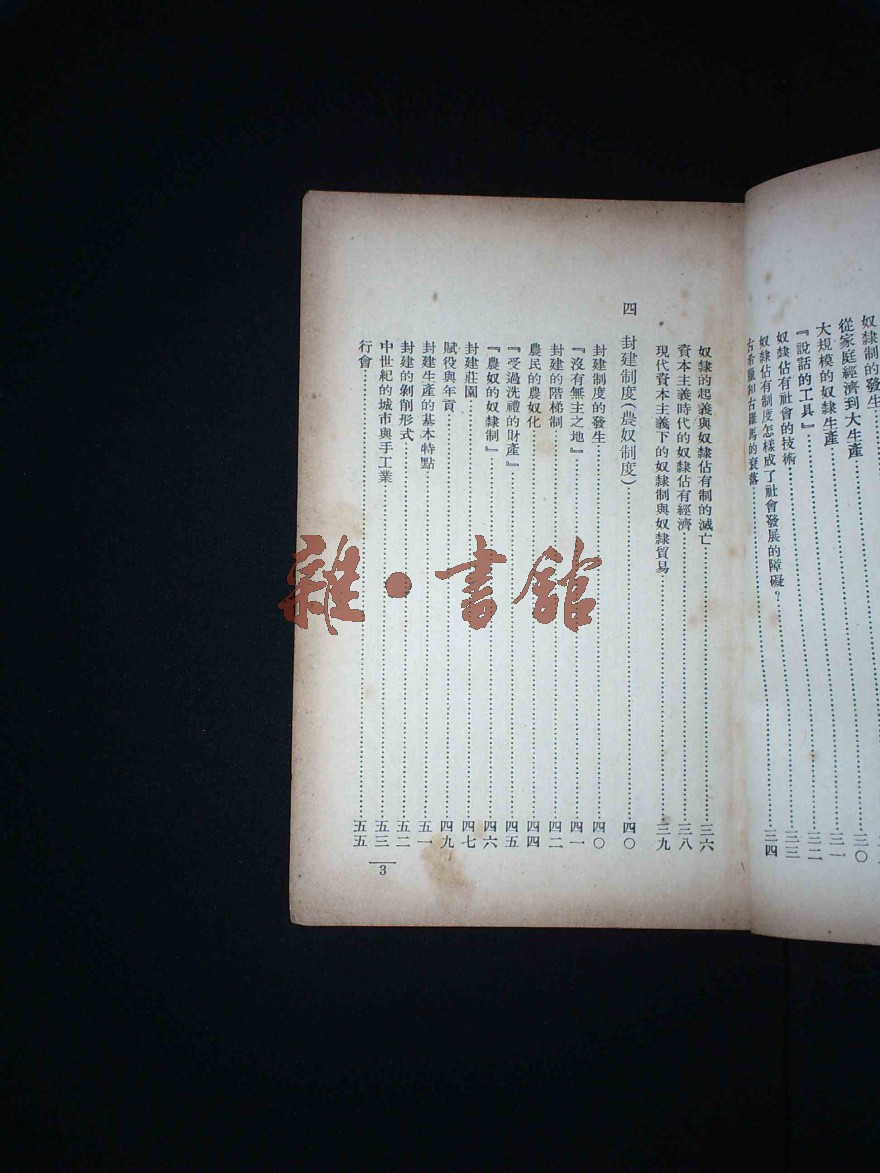 奴隸制的發生
從家庭經濟到大生產……三〇
大規模的奴隸生產……三一
『說話的工具』……三二
奴隸佔有社會的技術……三三
奴隸佔有制度怎樣成了社會發展的障礙?……三四
古希臘和古羅馬的衰落……
奴隸的起義與奴隸佔有制的滅亡……三六
資本主義時代的奴隸佔有經濟……三八
現代資本主義下的奴隸制與奴隸貿易……三九
四 封建制度(農奴制度)……四〇
封建制度的發生……四〇
『沒有無主之地』……四一
封建的階梯制……四二
農民的農奴化……四四
『受過洗禮的財產』……四五
『農奴的奴隸制』……四六
封建莊園……四七
賦役與年貢……四九
封建生產的基本特點……五一
封建的剝削形式……五二
中世紀的城市與手工業……五三
行會……五五
3
雜·書館